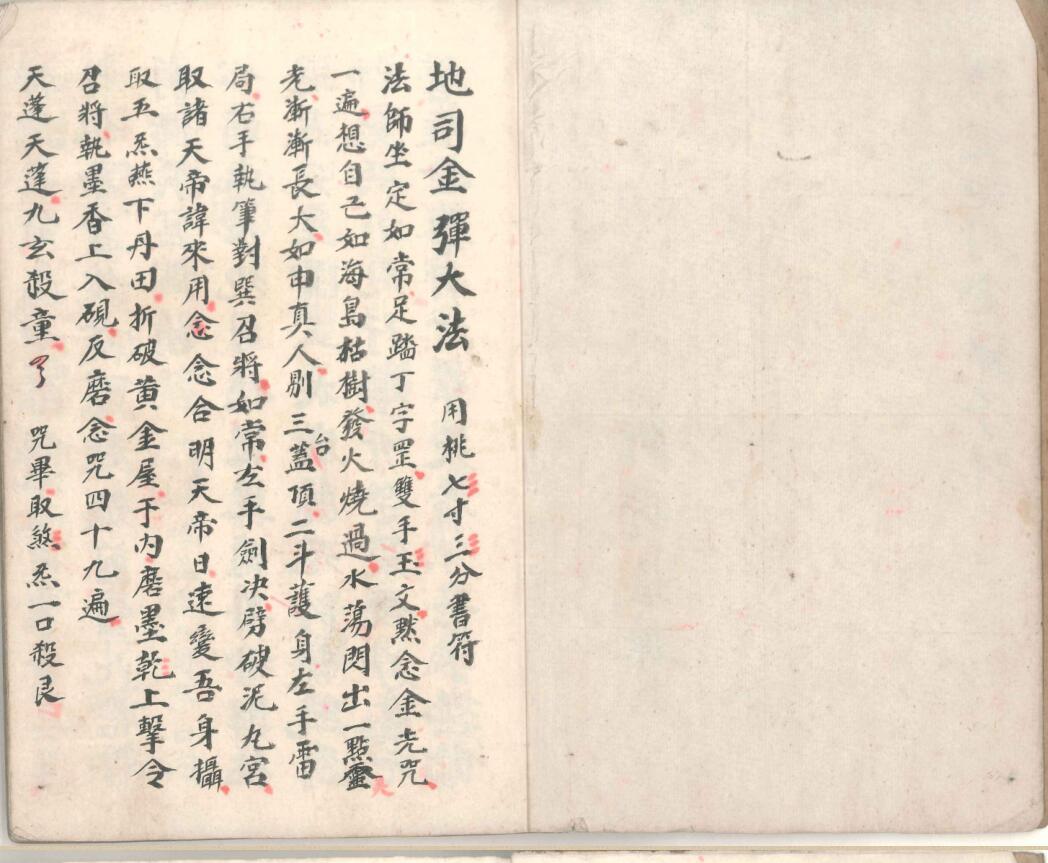 地司金彈大法　用桃七寸三分書符
法師坐定如常足踏丁字罡雙手玉文黙念金光咒
一遍想自己如海島枯樹發火燒過水蕩閃出一點靈
光漸漸長大如申真人剔三台蓋頂二斗護身左手雷
局右手執筆對巽召將如常左手劍决劈破泥丸宮
取諸天帝諱來用念念合明天帝日速變吾身攝
取五炁燕下丹田折破黄金屋于内磨墨乾上擊令
召將執墨香上入硯反磨念咒四十九遍
天蓬天蓬九玄殺童了　咒畢取煞炁一口殺艮